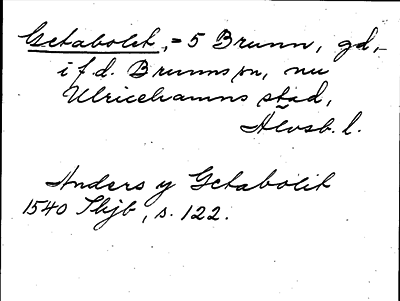 Getabolet, = 5 Brunn, gd,
i f.d. Brunns sn, nu
Ulricehamns stad,
Älvsb. l.
Anders y Getabolit
1540 Skjb, s. 122.